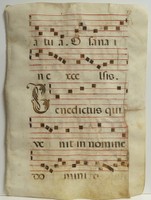 a tua. O sana i
n e xce lsis.
Benedictus qui
ve nit in nomine
do mini